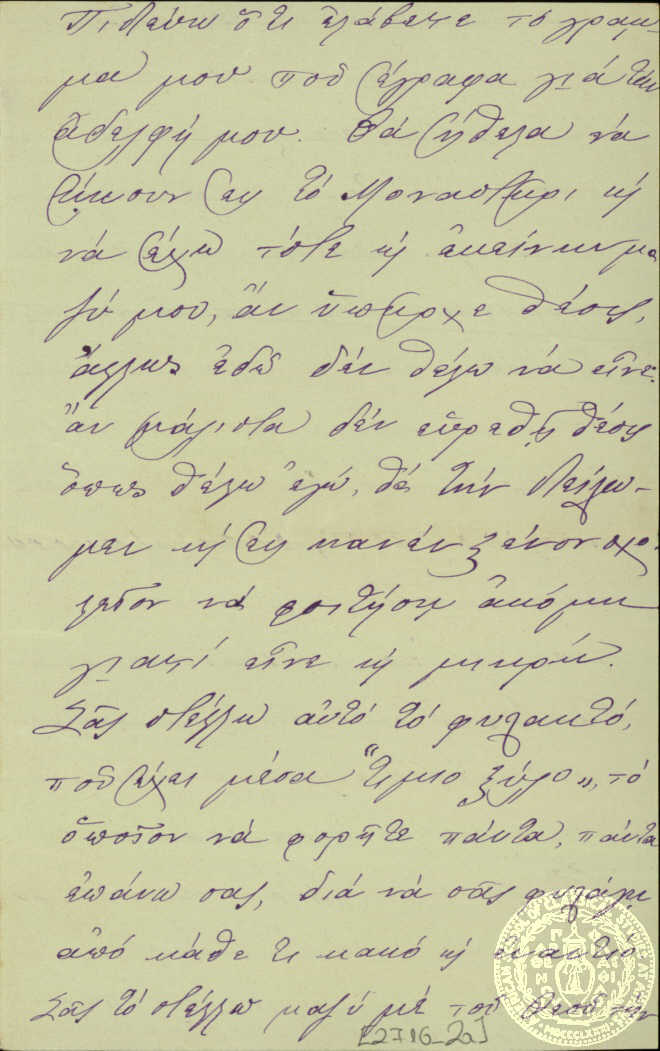 Πιστεύω ὅτι ἐλάβετε τὸ γράμ-
μα μου ποῦ ἔγραφα γιὰ τὴν
ἀδελφή μου. Θὰ ἤθελα νὰ
εἰς τὸ Μοναστήρι κὴ
νὰ ἔχω τότε κὴ ἐκείνην μα
ζύ μου, ἂν ὑπῆρχε θέσις,
ἄλλως ἐδῶ δὲν θέλω νὰ εἶνε.
ἂν μάλιστα δὲν εὑρεθῇ θέσις
ὅπως θέλω ἐγώ, θὰ τὴν
κὴ εἰς κανὲν ξένον σχο-
λεῖον νὰ φοιτήσῃ ἀκόμη
γιατί εἶνε κὴ μικρή.
Σᾶς στέλλω αὐτὸ τὸ φυλακτό,
ποῦ ἔχει μέσα "τίμιο ξύλο", τὸ
ὁποῖον νὰ φορῆτε πάντα, πάντα
ἐπάνω σας, διὰ νὰ σᾶς φυλάγῃ
ἀπὸ κάθε τι κακὸ κὴ ἐναντίο.
Σᾶς τὸ στέλλω μαζὺ μὲ τοῦ Θεοῦ τὴν
[2716_2a]